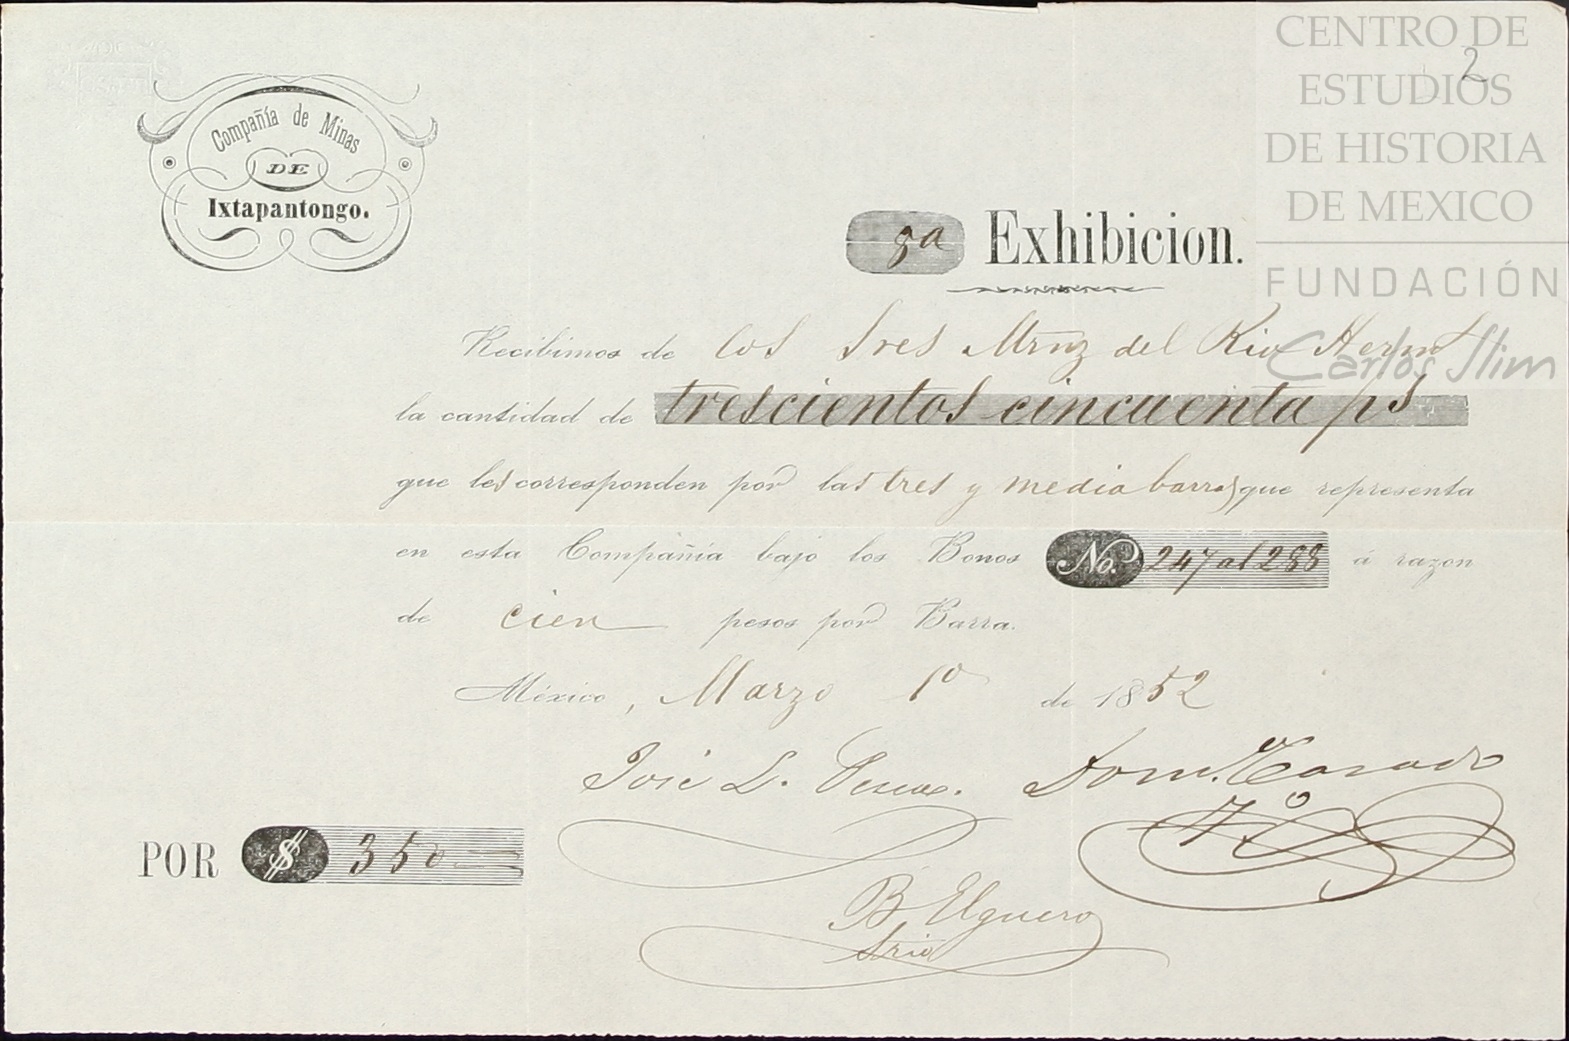 CENTRO DE
ESTUDIOS
DE HISTORIA
DE MEXICO
FUNDACIÓN
Carlos Slim
2
Compañía de Minas
DE
Ixtapantongo.
8a Exhibicion.
Recibimos de los Sres Mrnz del Rio Herms
la cantidad de trescientos cincuenta ps
que les corresponden por las tres y media barras que representa
en esta Compañia bajo los Bonos No. 247 al 288 á razon
de cien pesos por Barra.
México, Marzo 1o de 1852
José L.
POR $ 350
B. Elguero
Srio